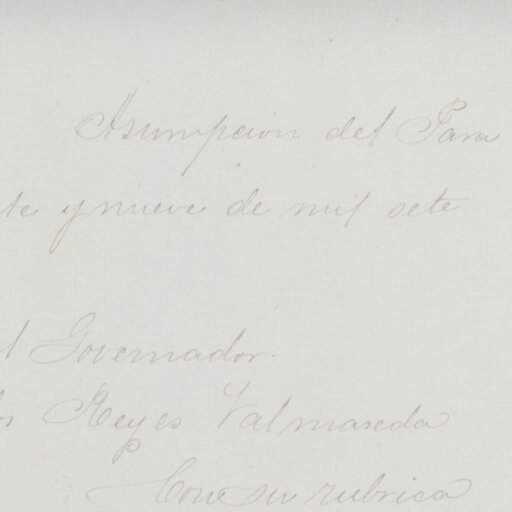 Asumpcion del Para
te y nueve de mil sete
l Governador.
os Reyes Valmaseda
Con su rubrica